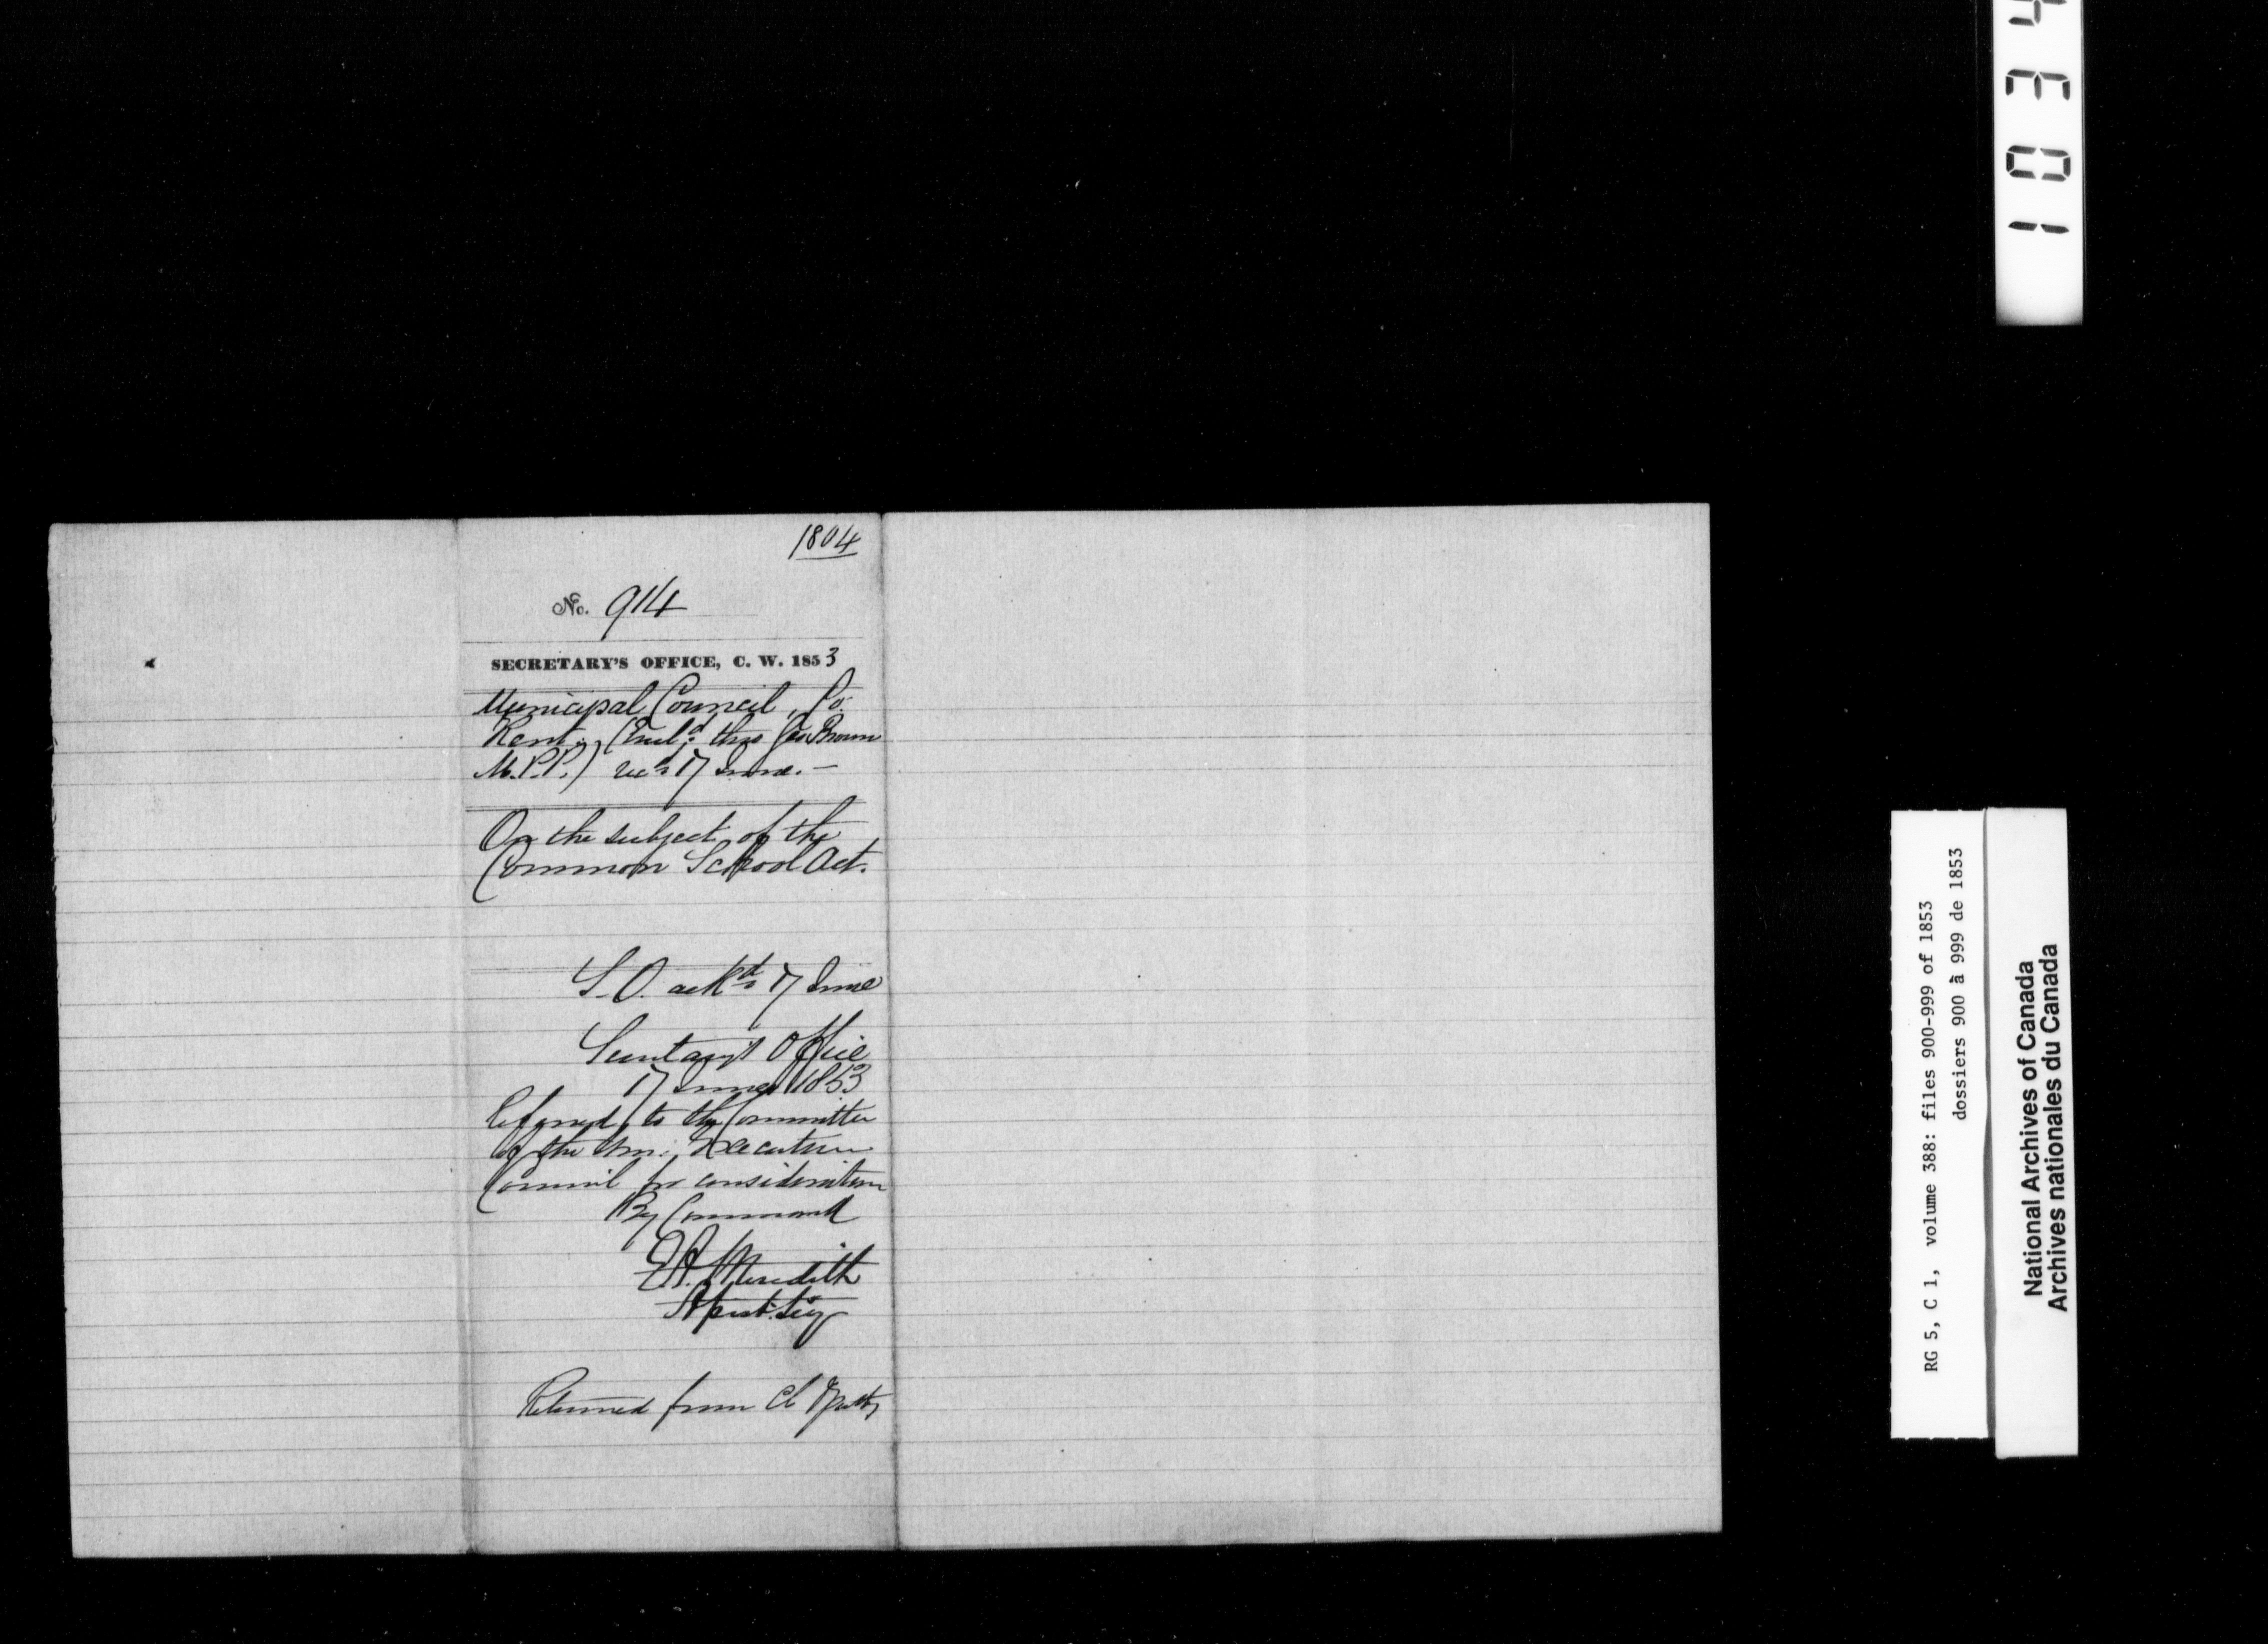 1804
No. 914
SECRETARY'S OFFICE, C. W. 1853
Municipal Council, Co.
Kent, (Encl.d thro Geo Brown
M.P.P.) rec.d 17 June. —
On the subject of the
Common School Act.
L.O. ack.d 17 June
Secretary's Office
17 June 1853
Referred to the Committee
of the Hon. Executive
Council for consideration
By Command
E.A. Meredith
Asst. Secy
Returned from
1034
RG 5, C 1, volume 388: files 900-999 of 1853
dossiers 900 à 999 de 1853
National Archives of Canada
Archives nationales du Canada